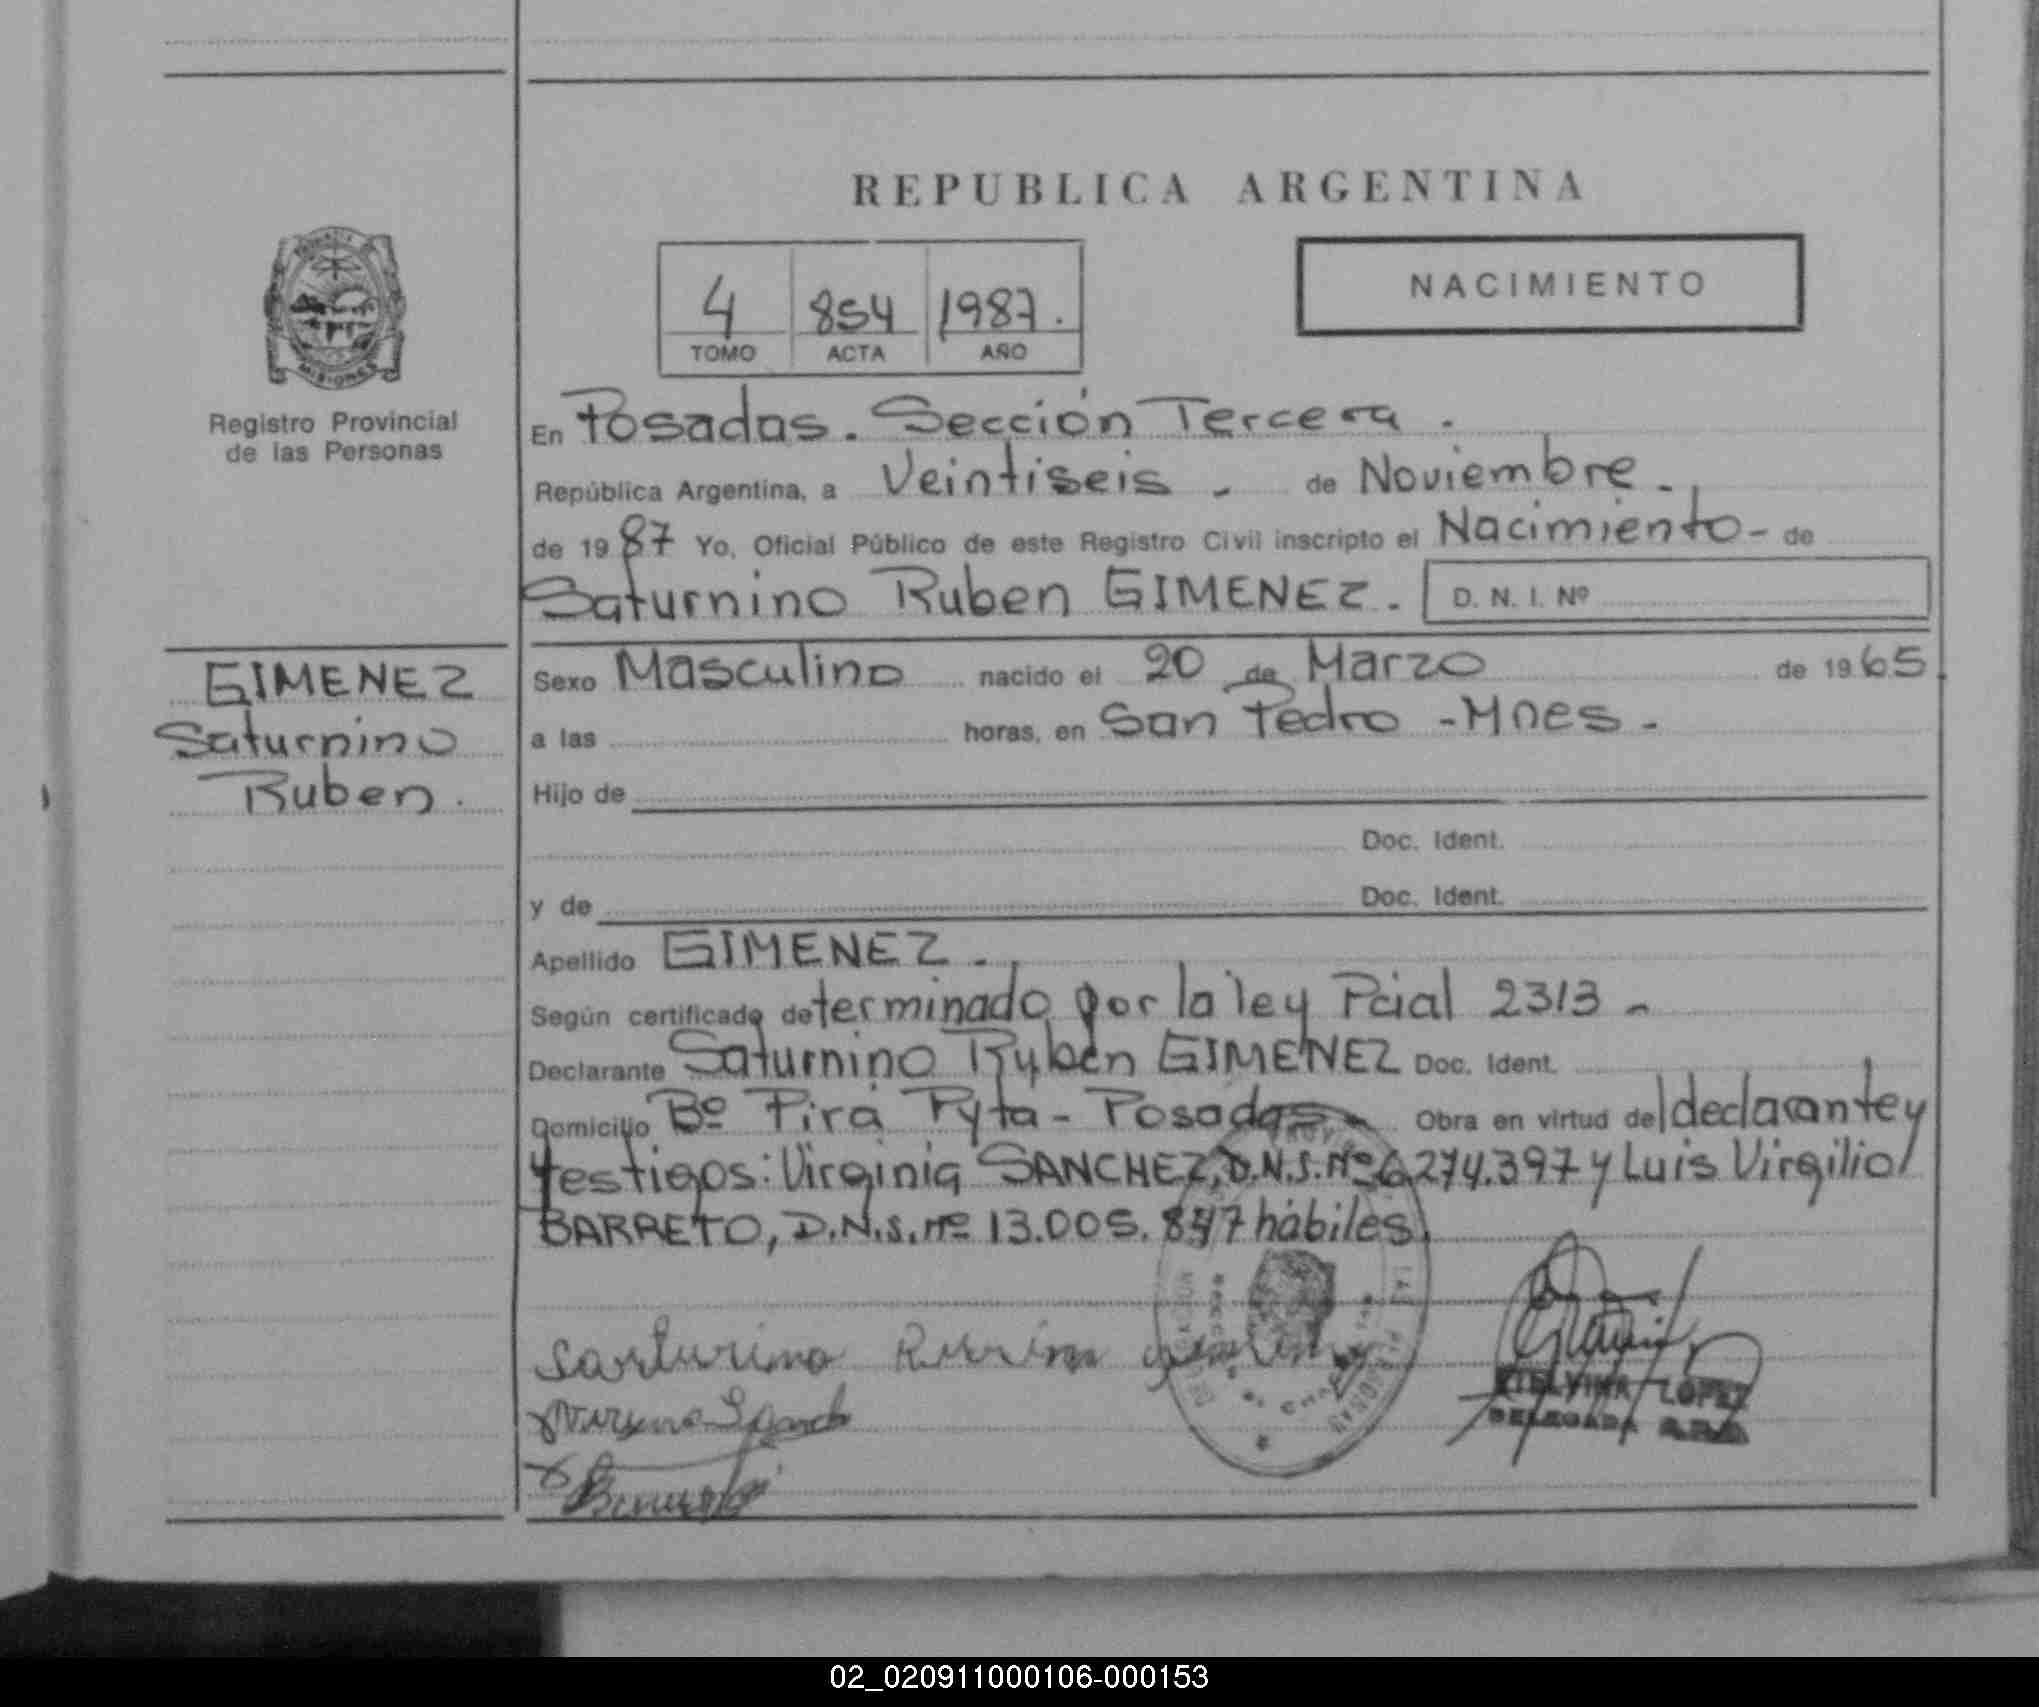 REPUBLICA ARGENTINA
4 854 1987.
TOMO ACTA AÑO
NACIMIENTO
MISIONES
Registro Provincial
de las Personas
En Posadas. Sección Tercera.
República Argentina, a Veintiseis - de Noviembre.
de 1987 Yo, Oficial Público de este Registro Civil inscripto el Nacimiento - de
Saturnino Ruben GIMENEZ. D. N. I. Nº
GIMENEZ
Saturnino
Ruben.
Sexo Masculino nacido el 20 de Marzo de 1965.
a las horas, en San Pedro - Mnes -
Hijo de
Doc. Ident.
y de Doc. Ident.
Apellido GIMENEZ.
Según certificado determinado por la ley Pcial 2313 -
Declarante Saturnino Ruben GIMENEZ Doc. Ident.
Domicilio Bº Pirá Pytá - Posadas - Obra en virtud del declarante y
testigos: Virginia SANCHEZ, D.N.I. Nº 6.274.397 y Luis Virgilio
BARRETO, D.N.I. nº 13.005.847 hábiles.
LOPEZ
DELEGADA
02_020911000106-000153